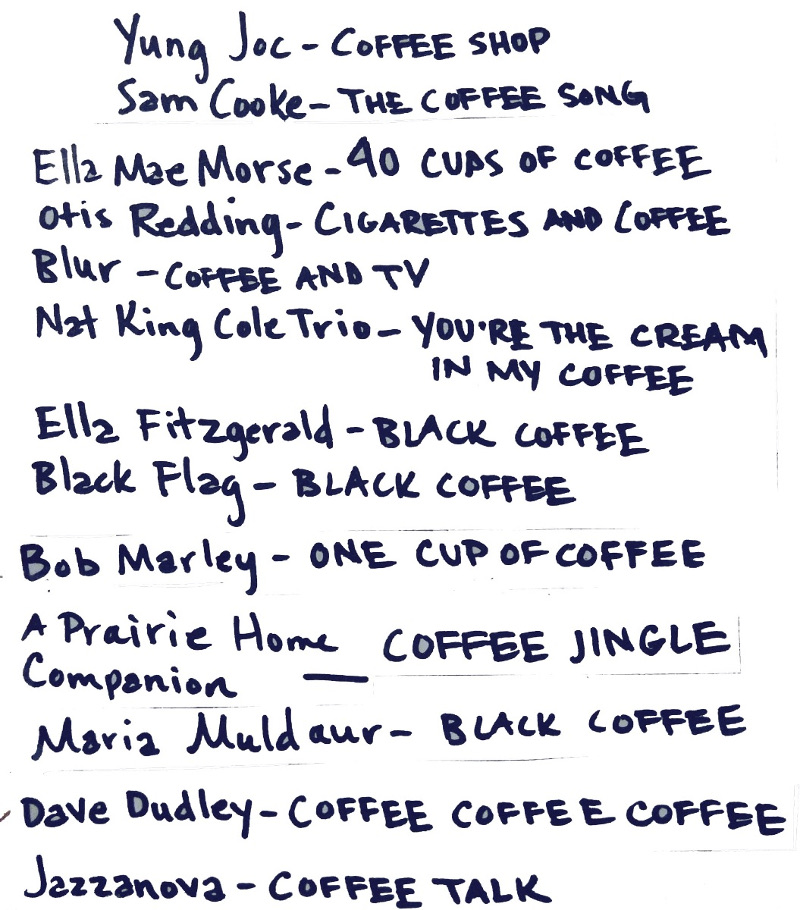 Yung Joc - COFFEE SHOP
Sam Cooke - THE COFFEE SONG
Ella Mae Morse - 40 CUPS OF COFFEE
Otis Redding - CIGARETTES AND COFFEE
Blur - COFFEE AND TV
Nat King Cole Trio - YOU'RE THE CREAM
IN MY COFFEE
Ella Fitzgerald - BLACK COFFEE
Black Flag - BLACK COFFEE
Bob Marley - ONE CUP OF COFFEE
A Prairie Home
Companion — COFFEE JINGLE
Maria Muldaur - BLACK COFFEE
Dave Dudley - COFFEE COFFEE COFFEE
Jazzanova - COFFEE TALK